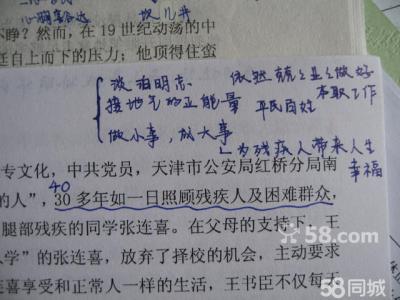 心胸豁达
不睁?然而,在19世纪动荡的中
廷自上而下的压力;他顶得住蛮
淡泊明志 依然兢兢业业做好
接地气的正能量 平民百姓 本职工作
做小事,成大事
为残疾人带来人生
幸福
专文化,中共党员,天津市公安局红桥分局南
的人”,
40
30多年如一日照顾残疾人及困难群众,
腿部残疾的同学张连喜。在父母的支持下,王
入学”的张连喜,放弃了择校的机会,主动要求
连喜享受和正常人一样的生活,王书臣不仅每天
58.com
58同城